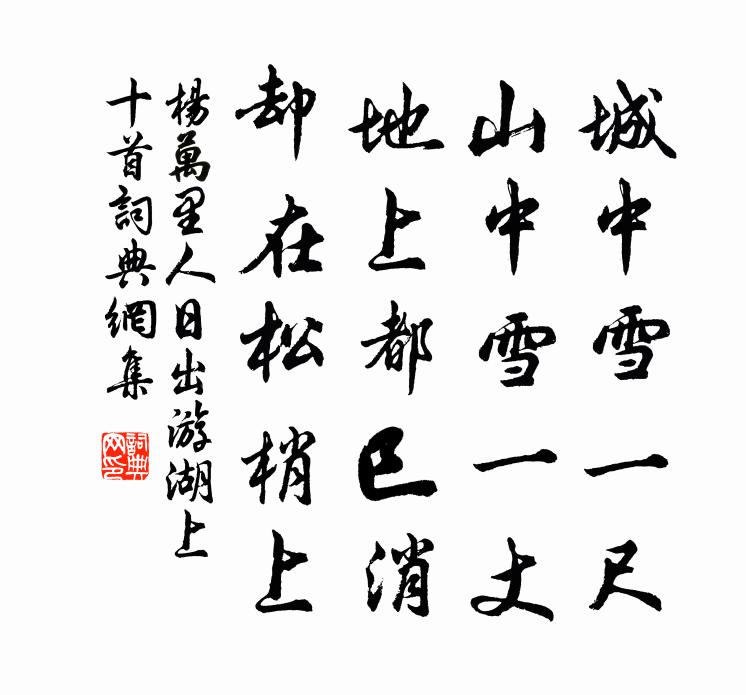 城中雪一尺
山中雪一丈
地上都已消
却在松梢上
楊萬里人日出游湖上
十首詞典網集
詞典
网印